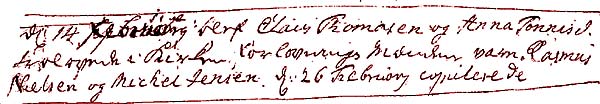 d 14 Februarij blef Claus Thomasen og Anna Tønnis d.
troelovede i Kirken, forlovnings Mændene vare Rasmus
Nielsen og Michel Jensen. d. 26 Februarij copulerede